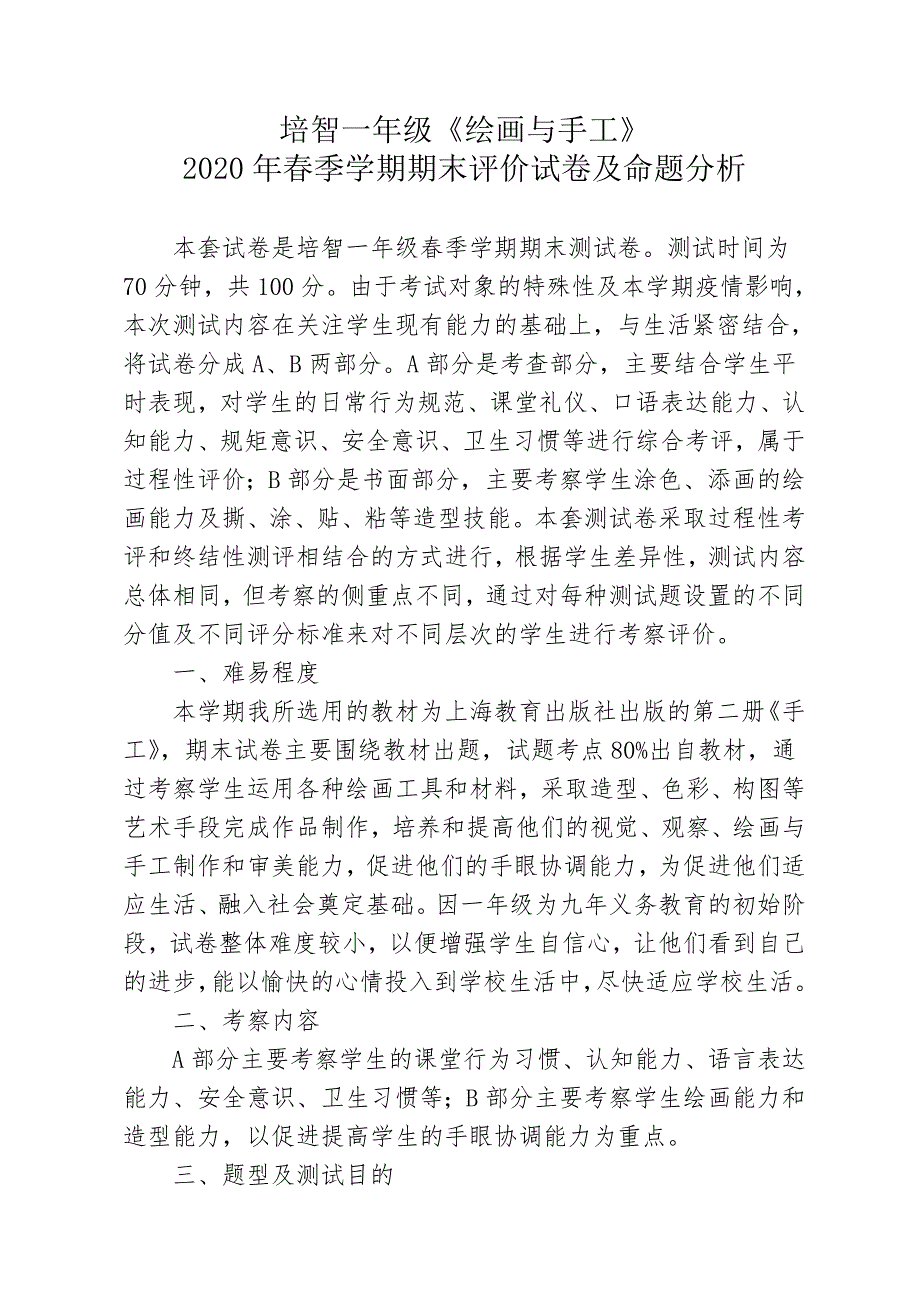 培智一年级《绘画与手工》
2020 年春季学期期末评价试卷及命题分析
本套试卷是培智一年级春季学期期末测试卷。测试时间为
70 分钟，共 100 分。由于考试对象的特殊性及本学期疫情影响，
本次测试内容在关注学生现有能力的基础上，与生活紧密结合，
将试卷分成 A、B 两部分。A 部分是考查部分，主要结合学生平
时表现，对学生的日常行为规范、课堂礼仪、口语表达能力、认
知能力、规矩意识、安全意识、卫生习惯等进行综合考评，属于
过程性评价；B 部分是书面部分，主要考察学生涂色、添画的绘
画能力及撕、涂、贴、粘等造型技能。本套测试卷采取过程性考
评和终结性测评相结合的方式进行，根据学生差异性，测试内容
总体相同，但考察的侧重点不同，通过对每种测试题设置的不同
分值及不同评分标准来对不同层次的学生进行考察评价。
一、难易程度
本学期我所选用的教材为上海教育出版社出版的第二册《手
工》，期末试卷主要围绕教材出题，试题考点 80%出自教材，通
过考察学生运用各种绘画工具和材料，采取造型、色彩、构图等
艺术手段完成作品制作，培养和提高他们的视觉、观察、绘画与
手工制作和审美能力，促进他们的手眼协调能力，为促进他们适
应生活、融入社会奠定基础。因一年级为九年义务教育的初始阶
段，试卷整体难度较小，以便增强学生自信心，让他们看到自己
的进步，能以愉快的心情投入到学校生活中，尽快适应学校生活。
二、考察内容
A 部分主要考察学生的课堂行为习惯、认知能力、语言表达
能力、安全意识、卫生习惯等；B 部分主要考察学生绘画能力和
造型能力，以促进提高学生的手眼协调能力为重点。
三、题型及测试目的